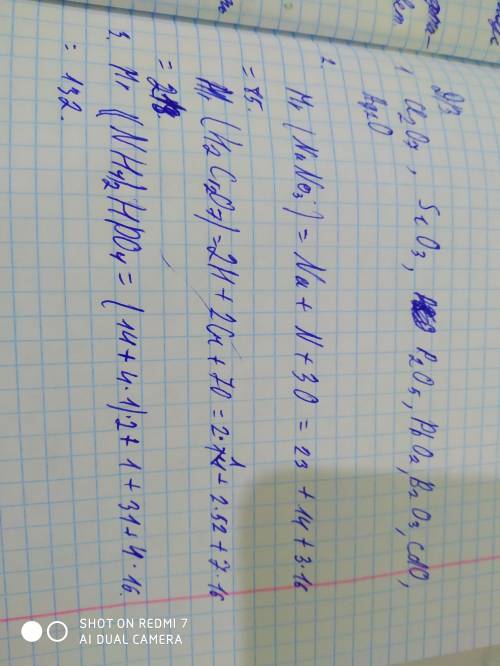 Д/з
1 Cl₂O₇, SeO₃, P₂O₅, PbO₂, B₂O₃, CdO,
Ag₂O
2. Mr (NaNo₃) = Na + N + 3O = 23 + 14 + 3·16
= 85.
Mr (H₂Cr₂O₇) = 2H + 2Cr + 7O = 2·1 + 2·52 + 7·16
3. Mr ((NH₄)₂HPO₄ = (14 + 4·1)·2 + 1 + 31 + 4·16
= 132.
SHOT ON REDMI 7
AI DUAL CAMERA